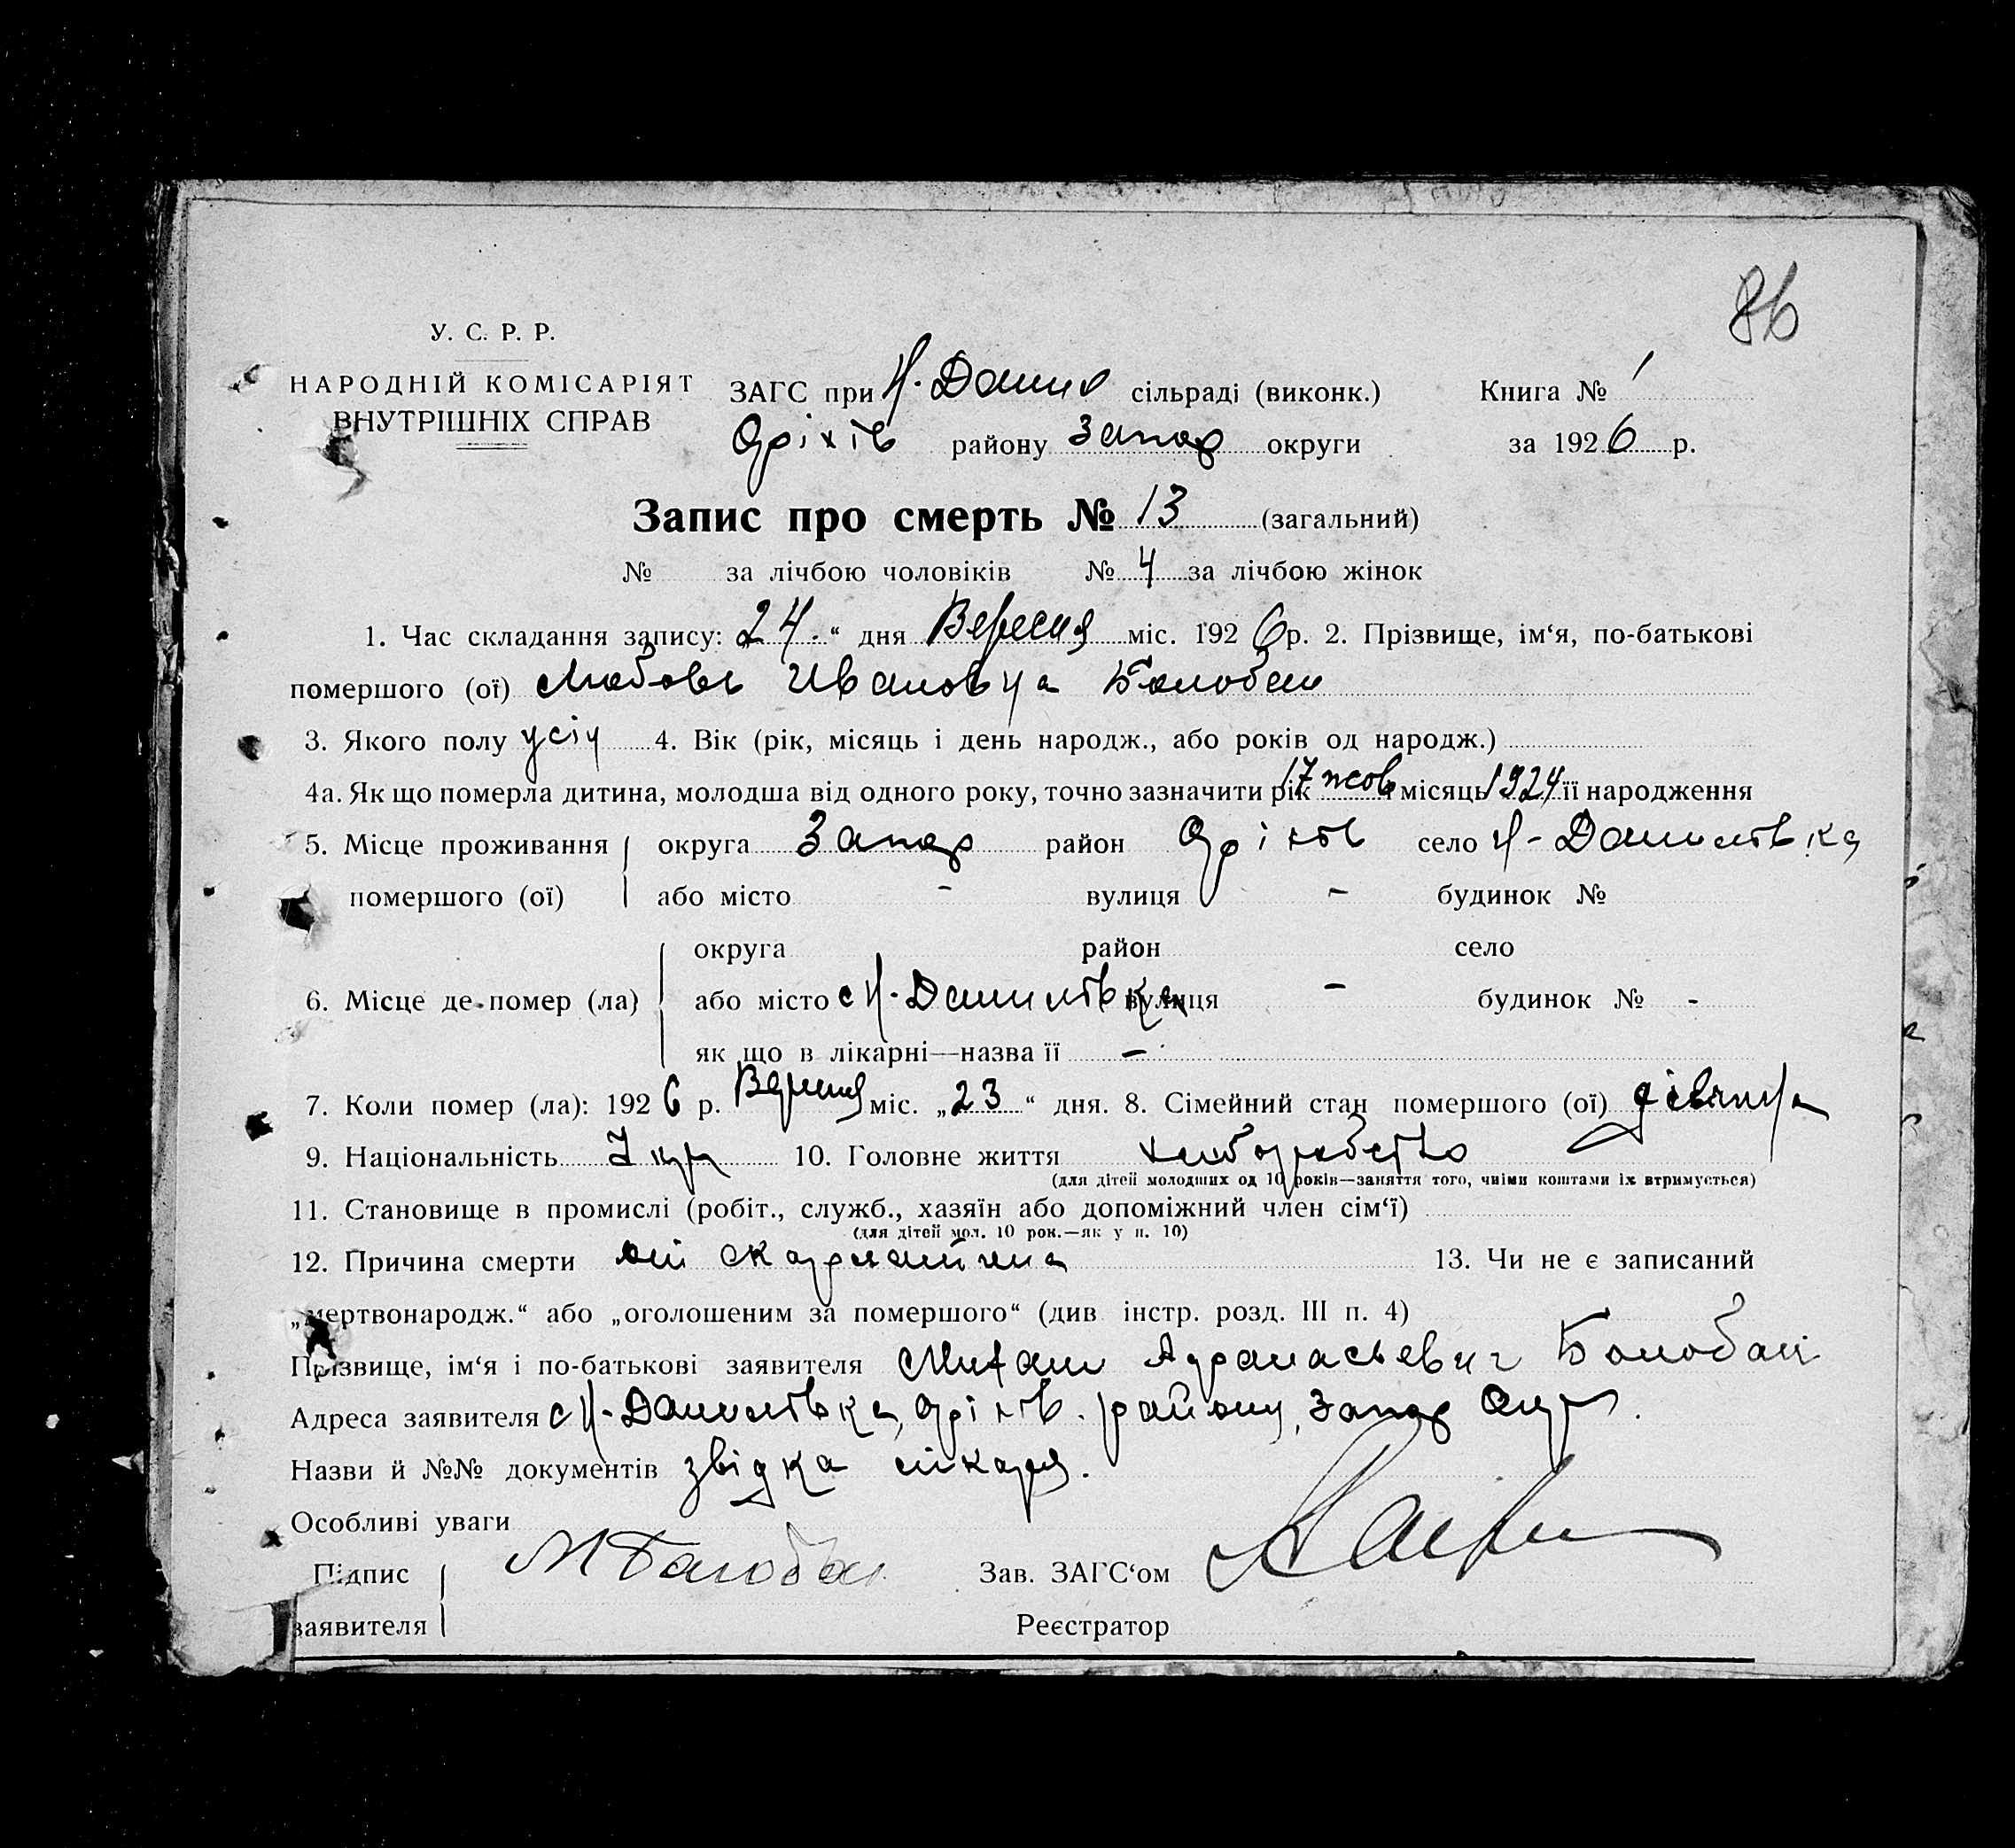 86
У. С. Р. Р.
НАРОДНІЙ КОМІСАРІЯТ
ВНУТРІШНІХ СПРАВ
ЗАГС при Н-Данил сільраді (виконк.) Книга № 1
Оріхів району Запор округи за 1926 р.
Запис про смерть № 13 (загальний)
№ за лічбою чоловіків № 4 за лічбою жінок
1. Час складання запису: „24“ дня Вересня міс. 1926 р. 2. Прізвище, ім‘я, по-батькові
помершого (ої) Любовь Ивановна Балобан
3. Якого полу 4. Вік (рік, місяць і день народж., або років од народж.)
4а. Як що померла дитина, молодша від одного року, точно зазначити рік 17 жов місяць 1924 її народження
5. Місце проживання округа Запор район Оріхів село Н-Данилівка
помершого (ої) або місто - вулиця - будинок №
округа район село
6. Місце де-помер (ла) або місто с Н-Данилівка вулиця - будинок № -
як що в лікарні—назва її -
7. Коли помер (ла): 1926 р. Вересня міс. „23“ дня. 8. Сімейний стан помершого (ої) дівчина
9. Національність Укр 10. Головне життя хліборобство
(для дітей молодших од 10 років—заняття того, чиїми коштами їх втримується)
11. Становище в промислі (робіт., служб., хазяїн або допоміжний член сім‘ї)
(для дітей мол. 10 рок.—як у п. 10)
12. Причина смерти скарлатина 13. Чи не є записаний
„мертвонародж.“ або „оголошеним за помершого“ (див інстр. розд. III п. 4)
Прізвище, ім‘я і по-батькові заявителя Михаил Афанасьевич Балобан
Адреса заявителя с Н-Данилівка, Оріхів. району, Запор Окр.
Назви й №№ документів звідка лікаря.
Особливі уваги
Підпис М Балобан Зав. ЗАГС‘ом
заявителя Реєстратор